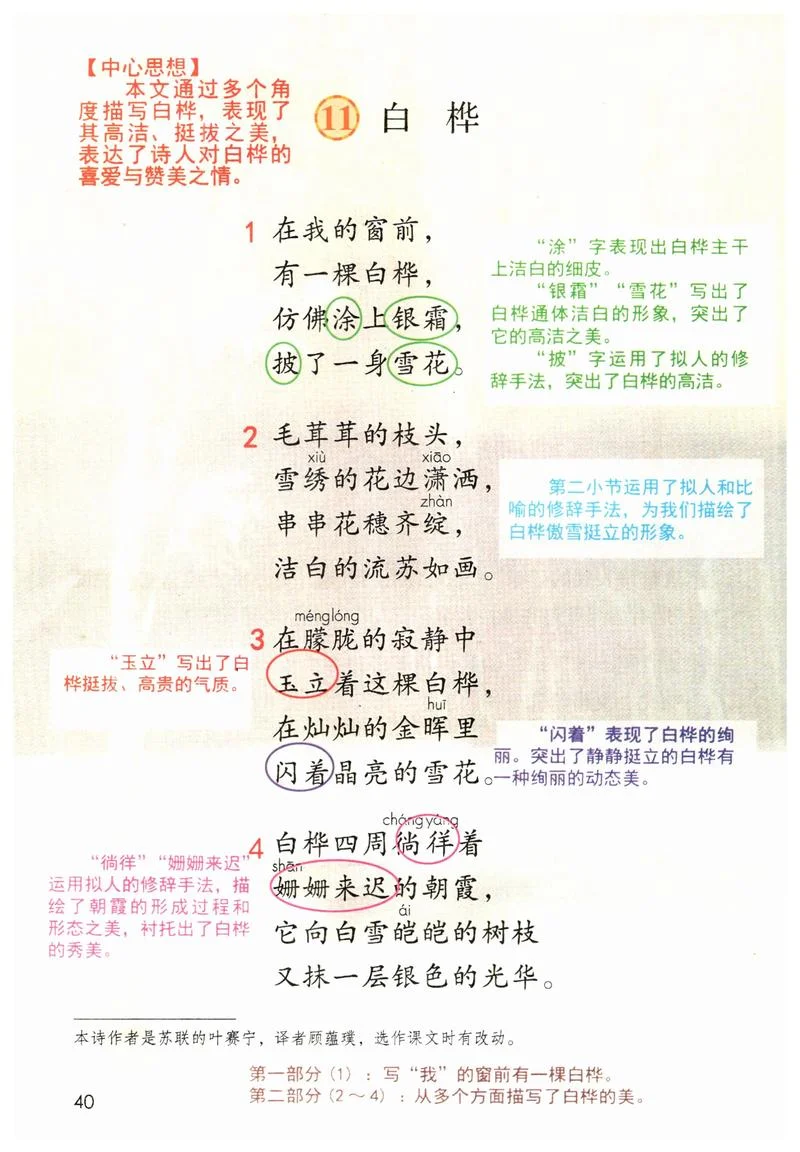 【中心思想】
本文通过多个角
度描写白桦，表现了
其高洁、挺拔之美，
表达了诗人对白桦的
喜爱与赞美之情。
11 白 桦
1 在我的窗前，
有一棵白桦，
仿佛涂上银霜，
披了一身雪花。
“涂”字表现出白桦主干
上洁白的细皮。
“银霜”“雪花”写出了
白桦通体洁白的形象，突出了
它的高洁之美。
“披”字运用了拟人的修
辞手法，突出了白桦的高洁。
2 毛茸茸的枝头，
xiù xiāo
雪绣的花边潇洒，
zhàn
串串花穗齐绽，
洁白的流苏如画。
第二小节运用了拟人和比
喻的修辞手法，为我们描绘了
白桦傲雪挺立的形象。
ménglóng
3 在朦胧的寂静中
玉立着这棵白桦，
huī
在灿灿的金晖里
闪着晶亮的雪花。
“玉立”写出了白
桦挺拔、高贵的气质。
“闪着”表现了白桦的绚
丽。突出了静静挺立的白桦有
一种绚丽的动态美。
cháng yáng
4 白桦四周徜徉着
shān
姗姗来迟的朝霞，
ái
它向白雪皑皑的树枝
又抹一层银色的光华。
“徜徉”“姗姗来迟”
运用拟人的修辞手法，描
绘了朝霞的形成过程和
形态之美，衬托出了白桦
的秀美。
本诗作者是苏联的叶赛宁，译者顾蕴璞，选作课文时有改动。
第一部分（1）：写“我”的窗前有一棵白桦。
第二部分（2～4）：从多个方面描写了白桦的美。
40